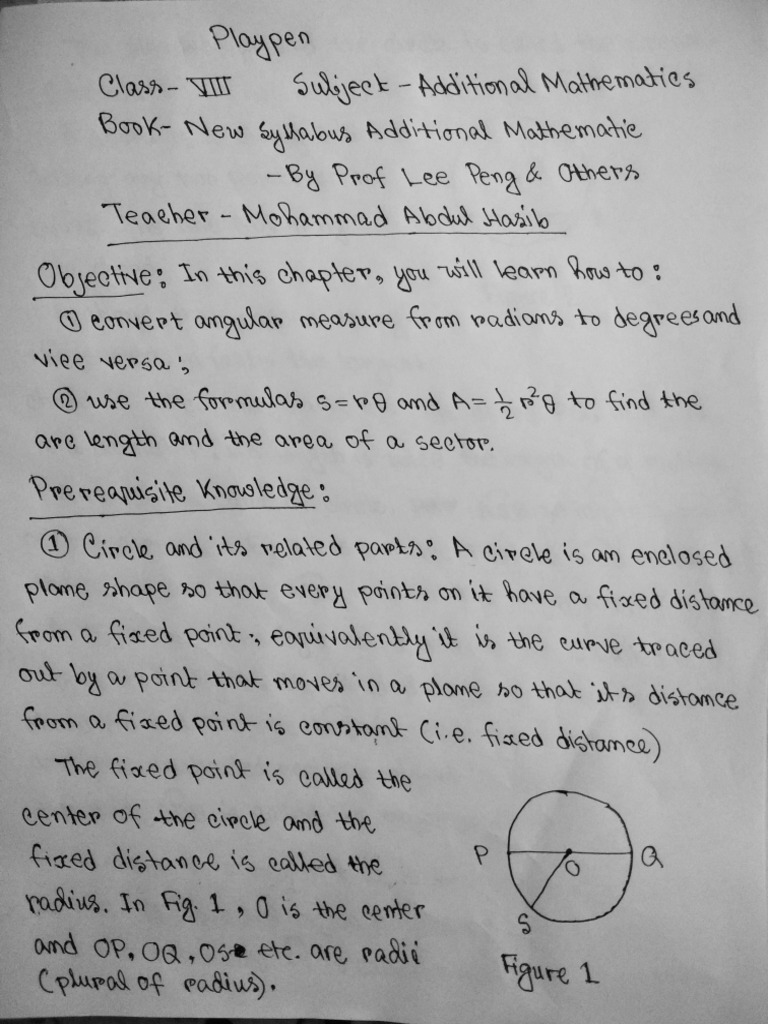 Playpen
Class - VIII Subject - Additional Mathematics
Book - New Syllabus Additional Mathematic
- By Prof Lee Peng & Others
Teacher - Mohammad Abdul Hasib
Objective: In this chapter, you will learn how to:
① convert angular measure from radians to degrees and
vice versa;
② use the formulas s = rθ and A = ½ r²θ to find the
arc length and the area of a sector.
Prerequisite Knowledge:
① Circle and its related parts: A circle is an enclosed
plane shape so that every points on it have a fixed distance
from a fixed point; equivalently it is the curve traced
out by a point that moves in a plane so that its distance
from a fixed point is constant (i.e. fixed distance)
The fixed point is called the
center of the circle and the
fixed distance is called the
radius. In Fig. 1, O is the center
and OP, OQ, OS etc. are radii
(plural of radius).
P O Q
S
Figure 1